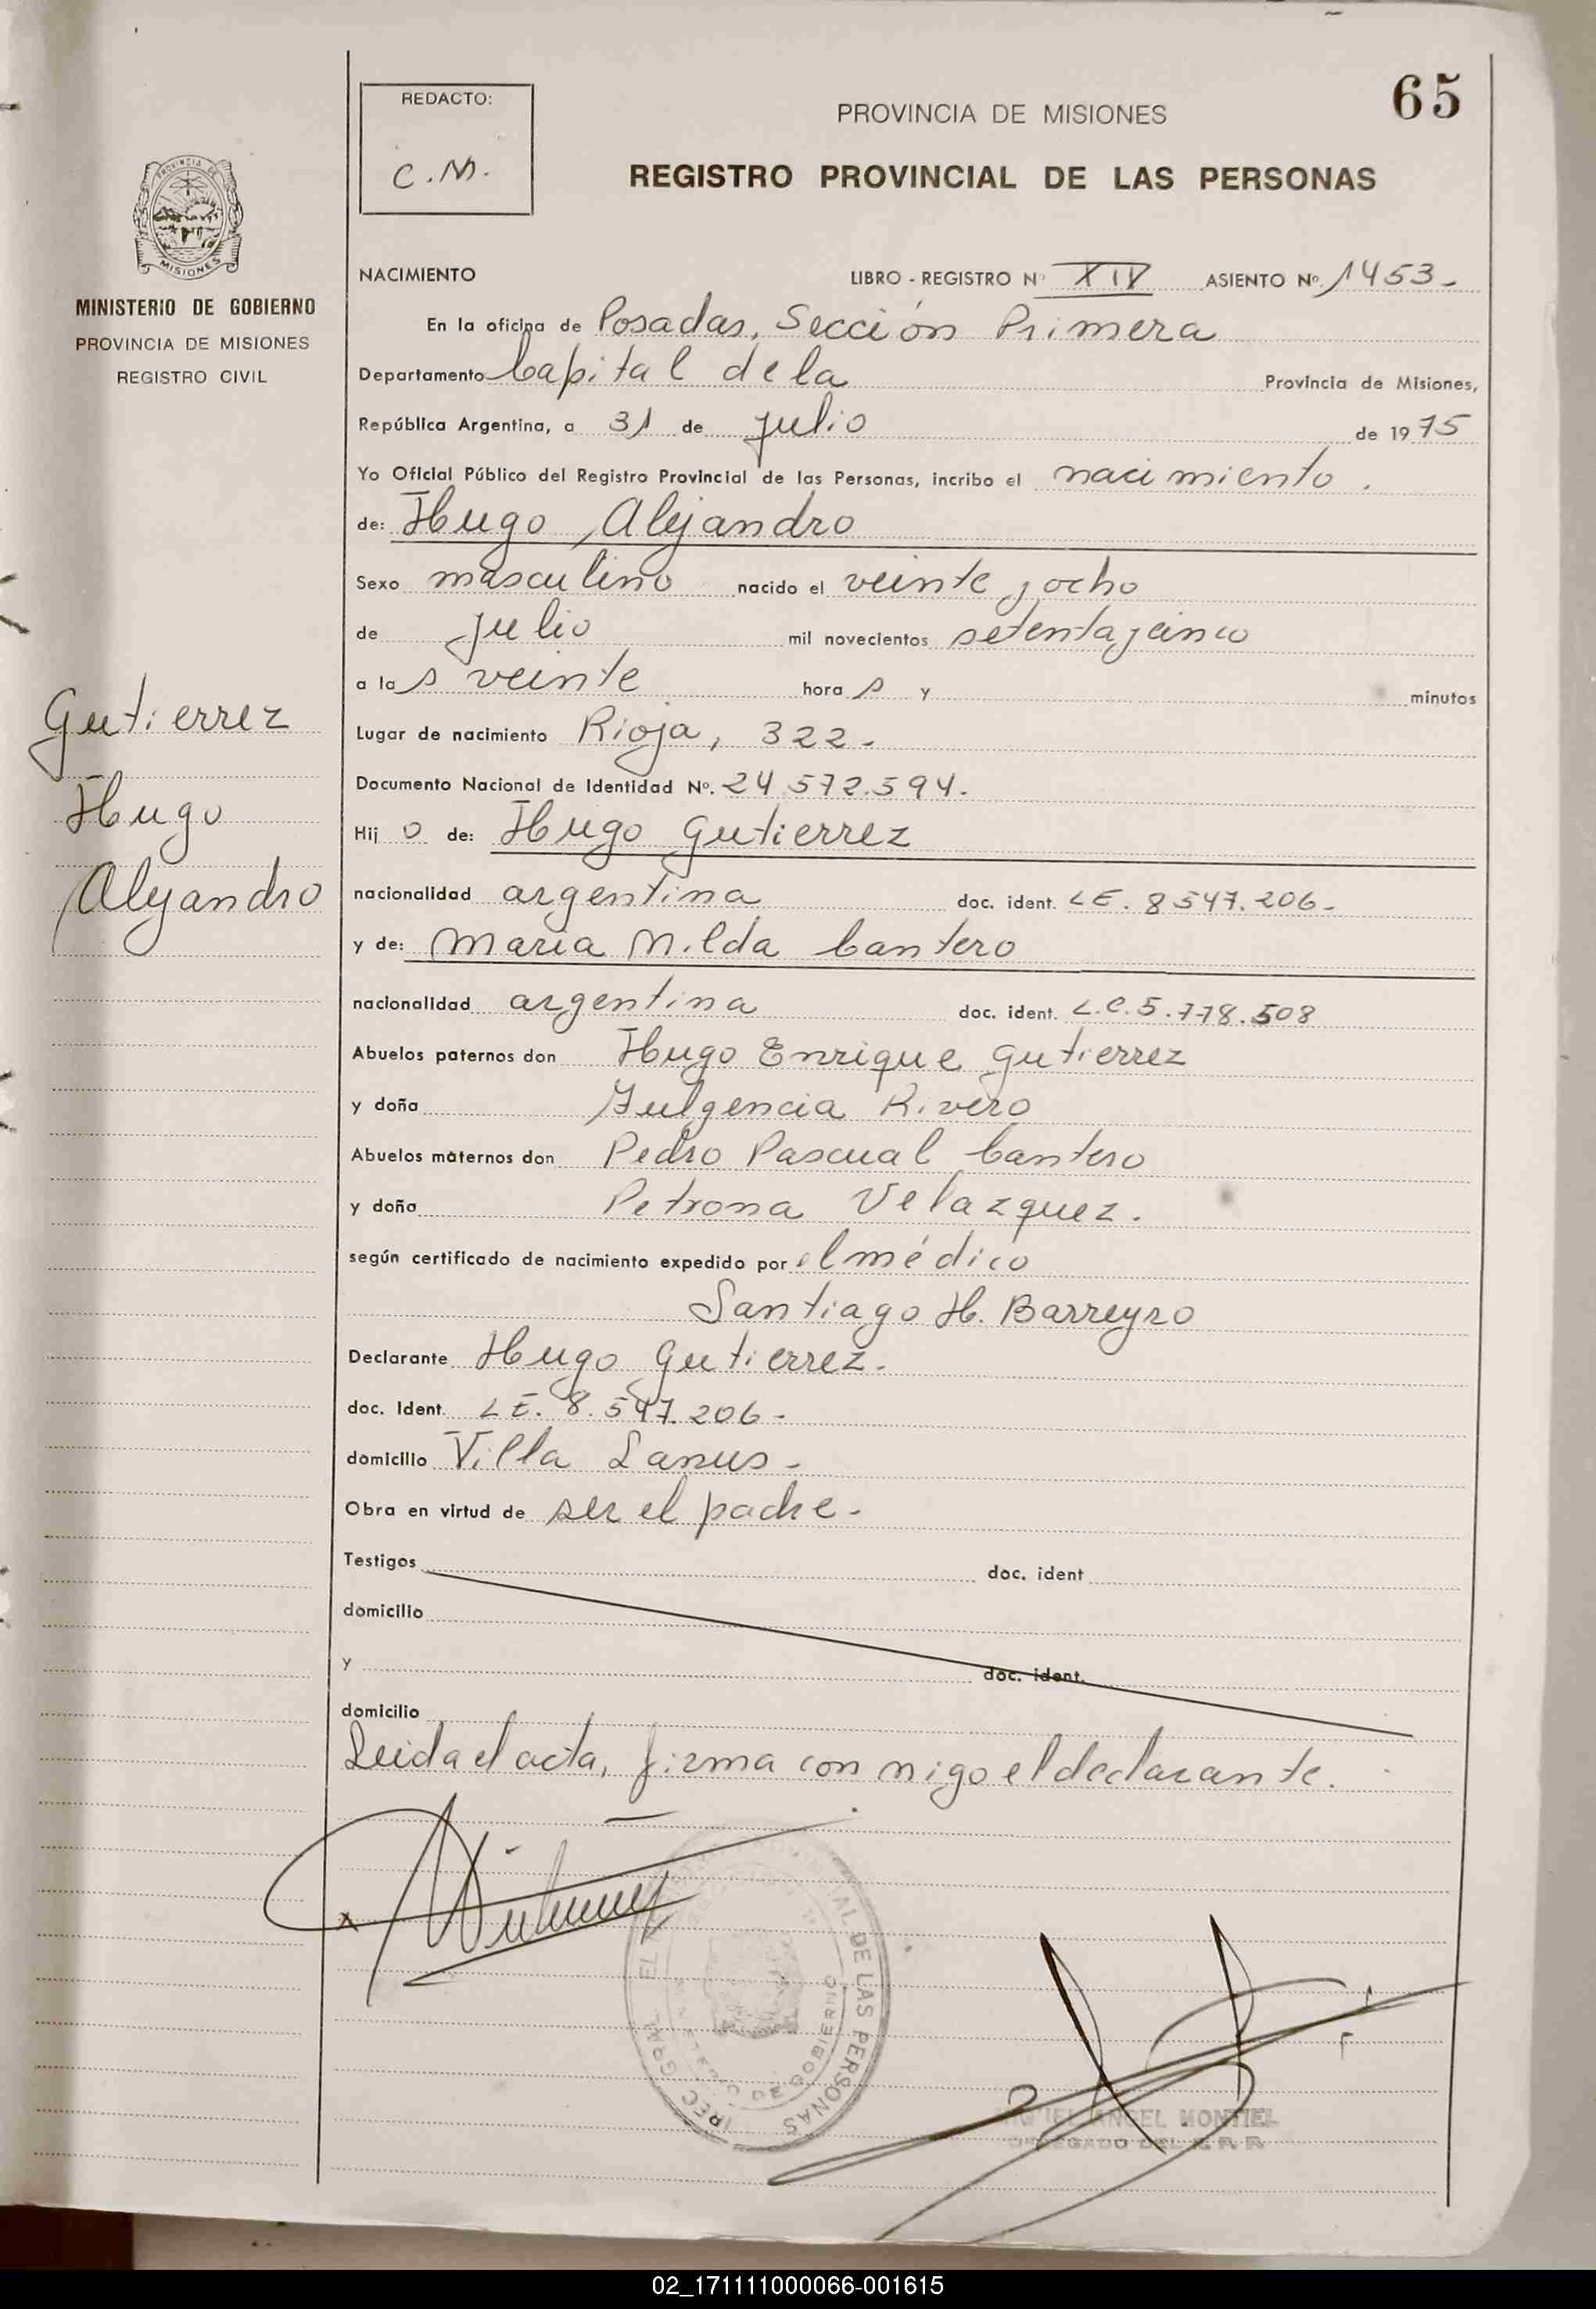 65
REDACTO:
C.M.
PROVINCIA DE MISIONES
REGISTRO PROVINCIAL DE LAS PERSONAS
PROVINCIA DE
MISIONES
MINISTERIO DE GOBIERNO
PROVINCIA DE MISIONES
REGISTRO CIVIL
NACIMIENTO LIBRO - REGISTRO Nº XIV ASIENTO Nº 1453-
En la oficina de Posadas, Sección Primera
Departamento Capital de la Provincia de Misiones,
República Argentina, a 31 de julio de 1975
Yo Oficial Público del Registro Provincial de las Personas, incribo el nacimiento.
de: Hugo Alejandro
Sexo masculino nacido el veinte y ocho
de Julio mil novecientos setenta y cinco
a las veinte horas y minutos
Lugar de nacimiento Rioja, 322.-
Documento Nacional de Identidad Nº. 24.572.594.
Hijo de: Hugo Gutierrez
Gutierrez
Hugo
Alejandro
nacionalidad argentina doc. ident. LE. 8547.206-
y de: Maria Nilda Cantero
nacionalidad argentina doc. ident. L.C.5.778.508
Abuelos paternos don Hugo Enrique Gutierrez
y doña Fulgencia Rivero
Abuelos maternos don Pedro Pascual Cantero
y doña Petrona Velazquez.
según certificado de nacimiento expedido por el médico
Santiago H. Barreyro
Declarante Hugo Gutierrez.
doc. Ident. LE. 8.547.206-
domicilio Villa Lanus-
Obra en virtud de ser el padre-
Testigos doc. ident
domicilio
y doc. ident.
domicilio
Leida el acta, firma con migo el declarante.
DE LAS PERSONAS
DE GOBIERNO
MIGUEL ANGEL MONTIEL
DELEGADO DEL
02_171111000066-001615